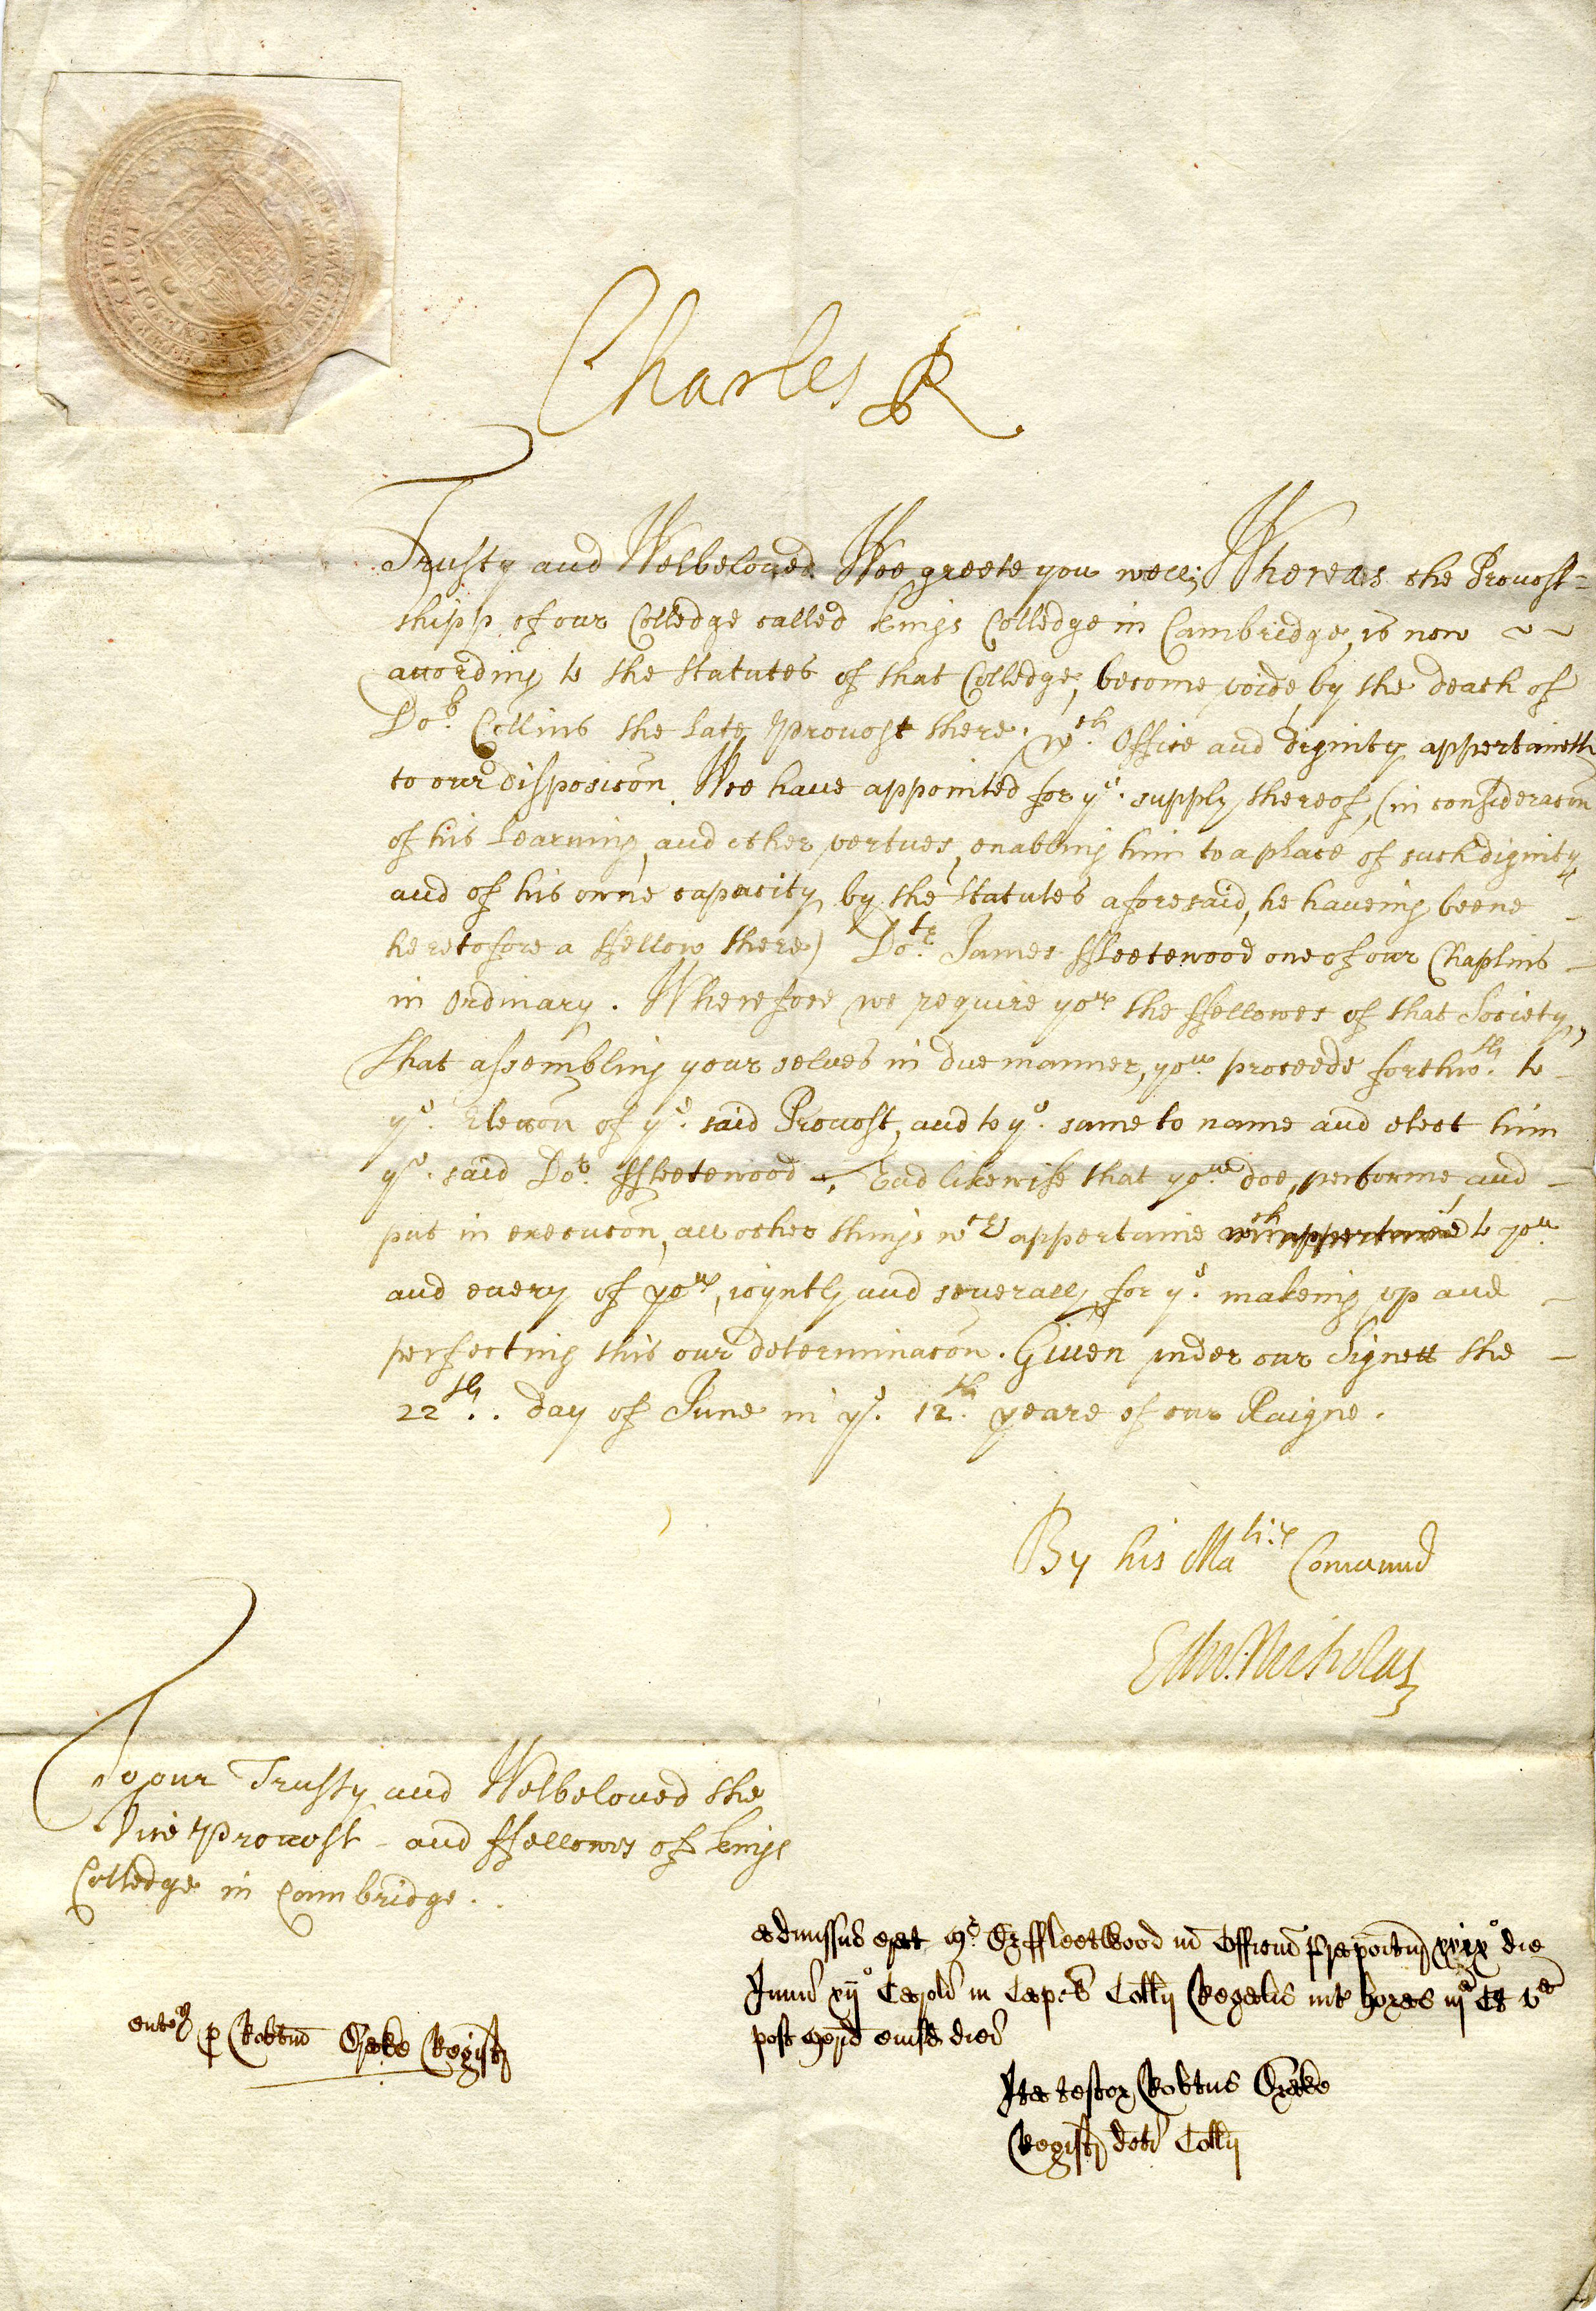 Charles R
Trusty and Welbeloued Wee greete you well; Whereas the Prouost-
shipp of our Colledge called kings Colledge in Cambridge, is now
according to the Statutes of that Colledge, become voide, by the death of
Dor. Collins the late prouost there. wch. Office and dignity appertaineth
to our disposicon. Wee haue appointed for ye. supply thereof, (in consideracon
of his learning, and other vertues, enabling him to a place of such dignity,
and of his owne capacity by the Statutes aforesaid, he haueing beene
heretofore a ffellow there) Dotr. James ffleetewood one of our Chaplins
in Ordinary. Wherefore we require you the ffellowes of that Society,
that assembling your selues in due manner, you proceede forthwth. to
ye. Eleccon of ye. said Prouost, and to ye. same to name and elect him
ye. said Dor. ffleetewood. And likewise that you doe, performe, and
put in execucon, all other things wch appertaine wch appertaine to you
and euery of you, ioyntly and seuerally, for ye. makeing vp and
perfecting this our determinacon. Giuen vnder our Signett the
22th. day of June in ye. 12th. yeare of our Raigne.
By his Maties Comaund
Edw. Nicholas
To our Trusty and Welbeloued the
Vice prouost and ffellows of kings
Colledge in Cambridge.
admissus erat Mr. Dr ffleetwood in Officiu Prepositur xxixo die
Junii xijo Caroli in Capella Collij Regalis inter horas iijā et vā
post merid eiusd diei
Ita testor Robtus Grebe
Registr dcti Collij
entr p Robtum Grebe Registr